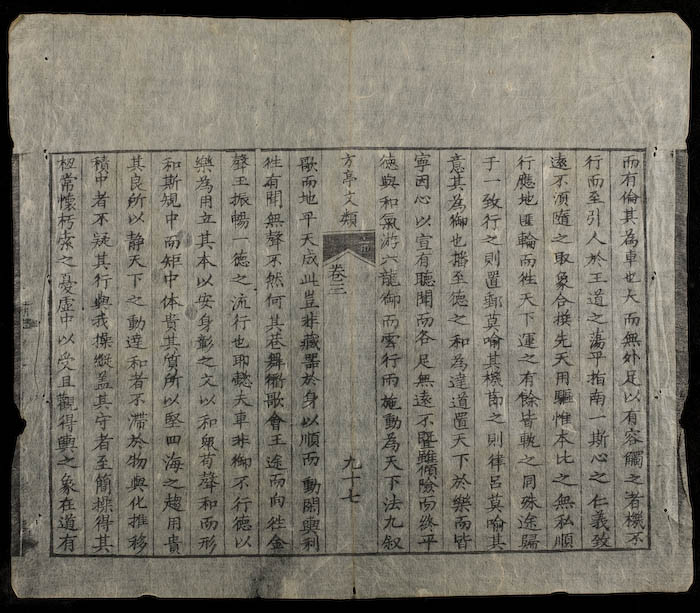 而有倫其為車也大而無外足以有容觸之者機不
行而至引人於王道之蕩平指南一斯心之仁義致
遠不須隨之取象合撰先天用驅惟本比之無私順
行應地匪輪而徃天下運之有餘皆軌之同殊途歸
于一致行之則置郵莫喻其機節之則律呂莫喻其
意其為御也措至德之和為達道置天下於樂而皆
寧因心以宣有聽聞而各足無遠不曁雖傾險而終平
德與和氣游六龍御而雲行雨施動為天下法九叙
方亭文類
卷三
九十七
歌而地平天成此豈非藏器於身以順而動開輿利
徃有開無聲不然何其巷舞衢歌會王途而向徃金
聲玉振暢一德之流行也耶懿夫車非御不行德以
樂為用立其本以安身彰之文以和衆苟聲和而形
和斯規中而矩中体貴其質所以堅四海之趨用貴
其良所以静天下之動達和者不滯於物與化推移
積中者不疑其行與我操縱盖其守者至簡操得其
樞常懷朽索之憂虚中以受且觀得輿之象在道有